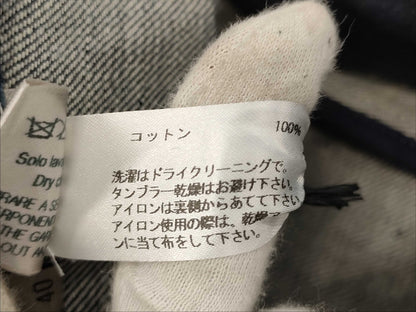 コットン 100%
洗濯はドライクリーニングで。
タンブラー乾燥はお避け下さい。
アイロンは裏側からあてて下さい
アイロン使用の際は。乾燥アイロ
ンに当て布をして下さい。
Solo lava
Dry c
RPONENT
THE GAR
OUT AN
40